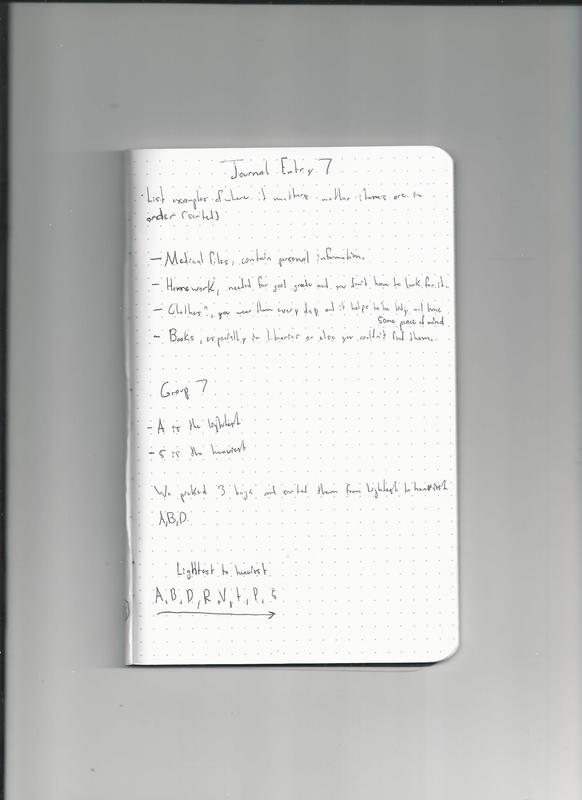 Journal Entry 7
List examples of where it matters items are in
order (sorted)
— Medical files, contain personal information.
— Homework, needed for good grade and you don't have to look for it.
— Clothes, you wear them every day and it helps to be tidy and have
some peace of mind
— Books, especially in libraries or else you couldn't find them.
Group 7
- A is the lightest
- S is the heaviest
We picked 3 bags and sorted them from lightest to heaviest
A,B,D.
Lightest to heaviest
A, B, D, R, V, t, P, S